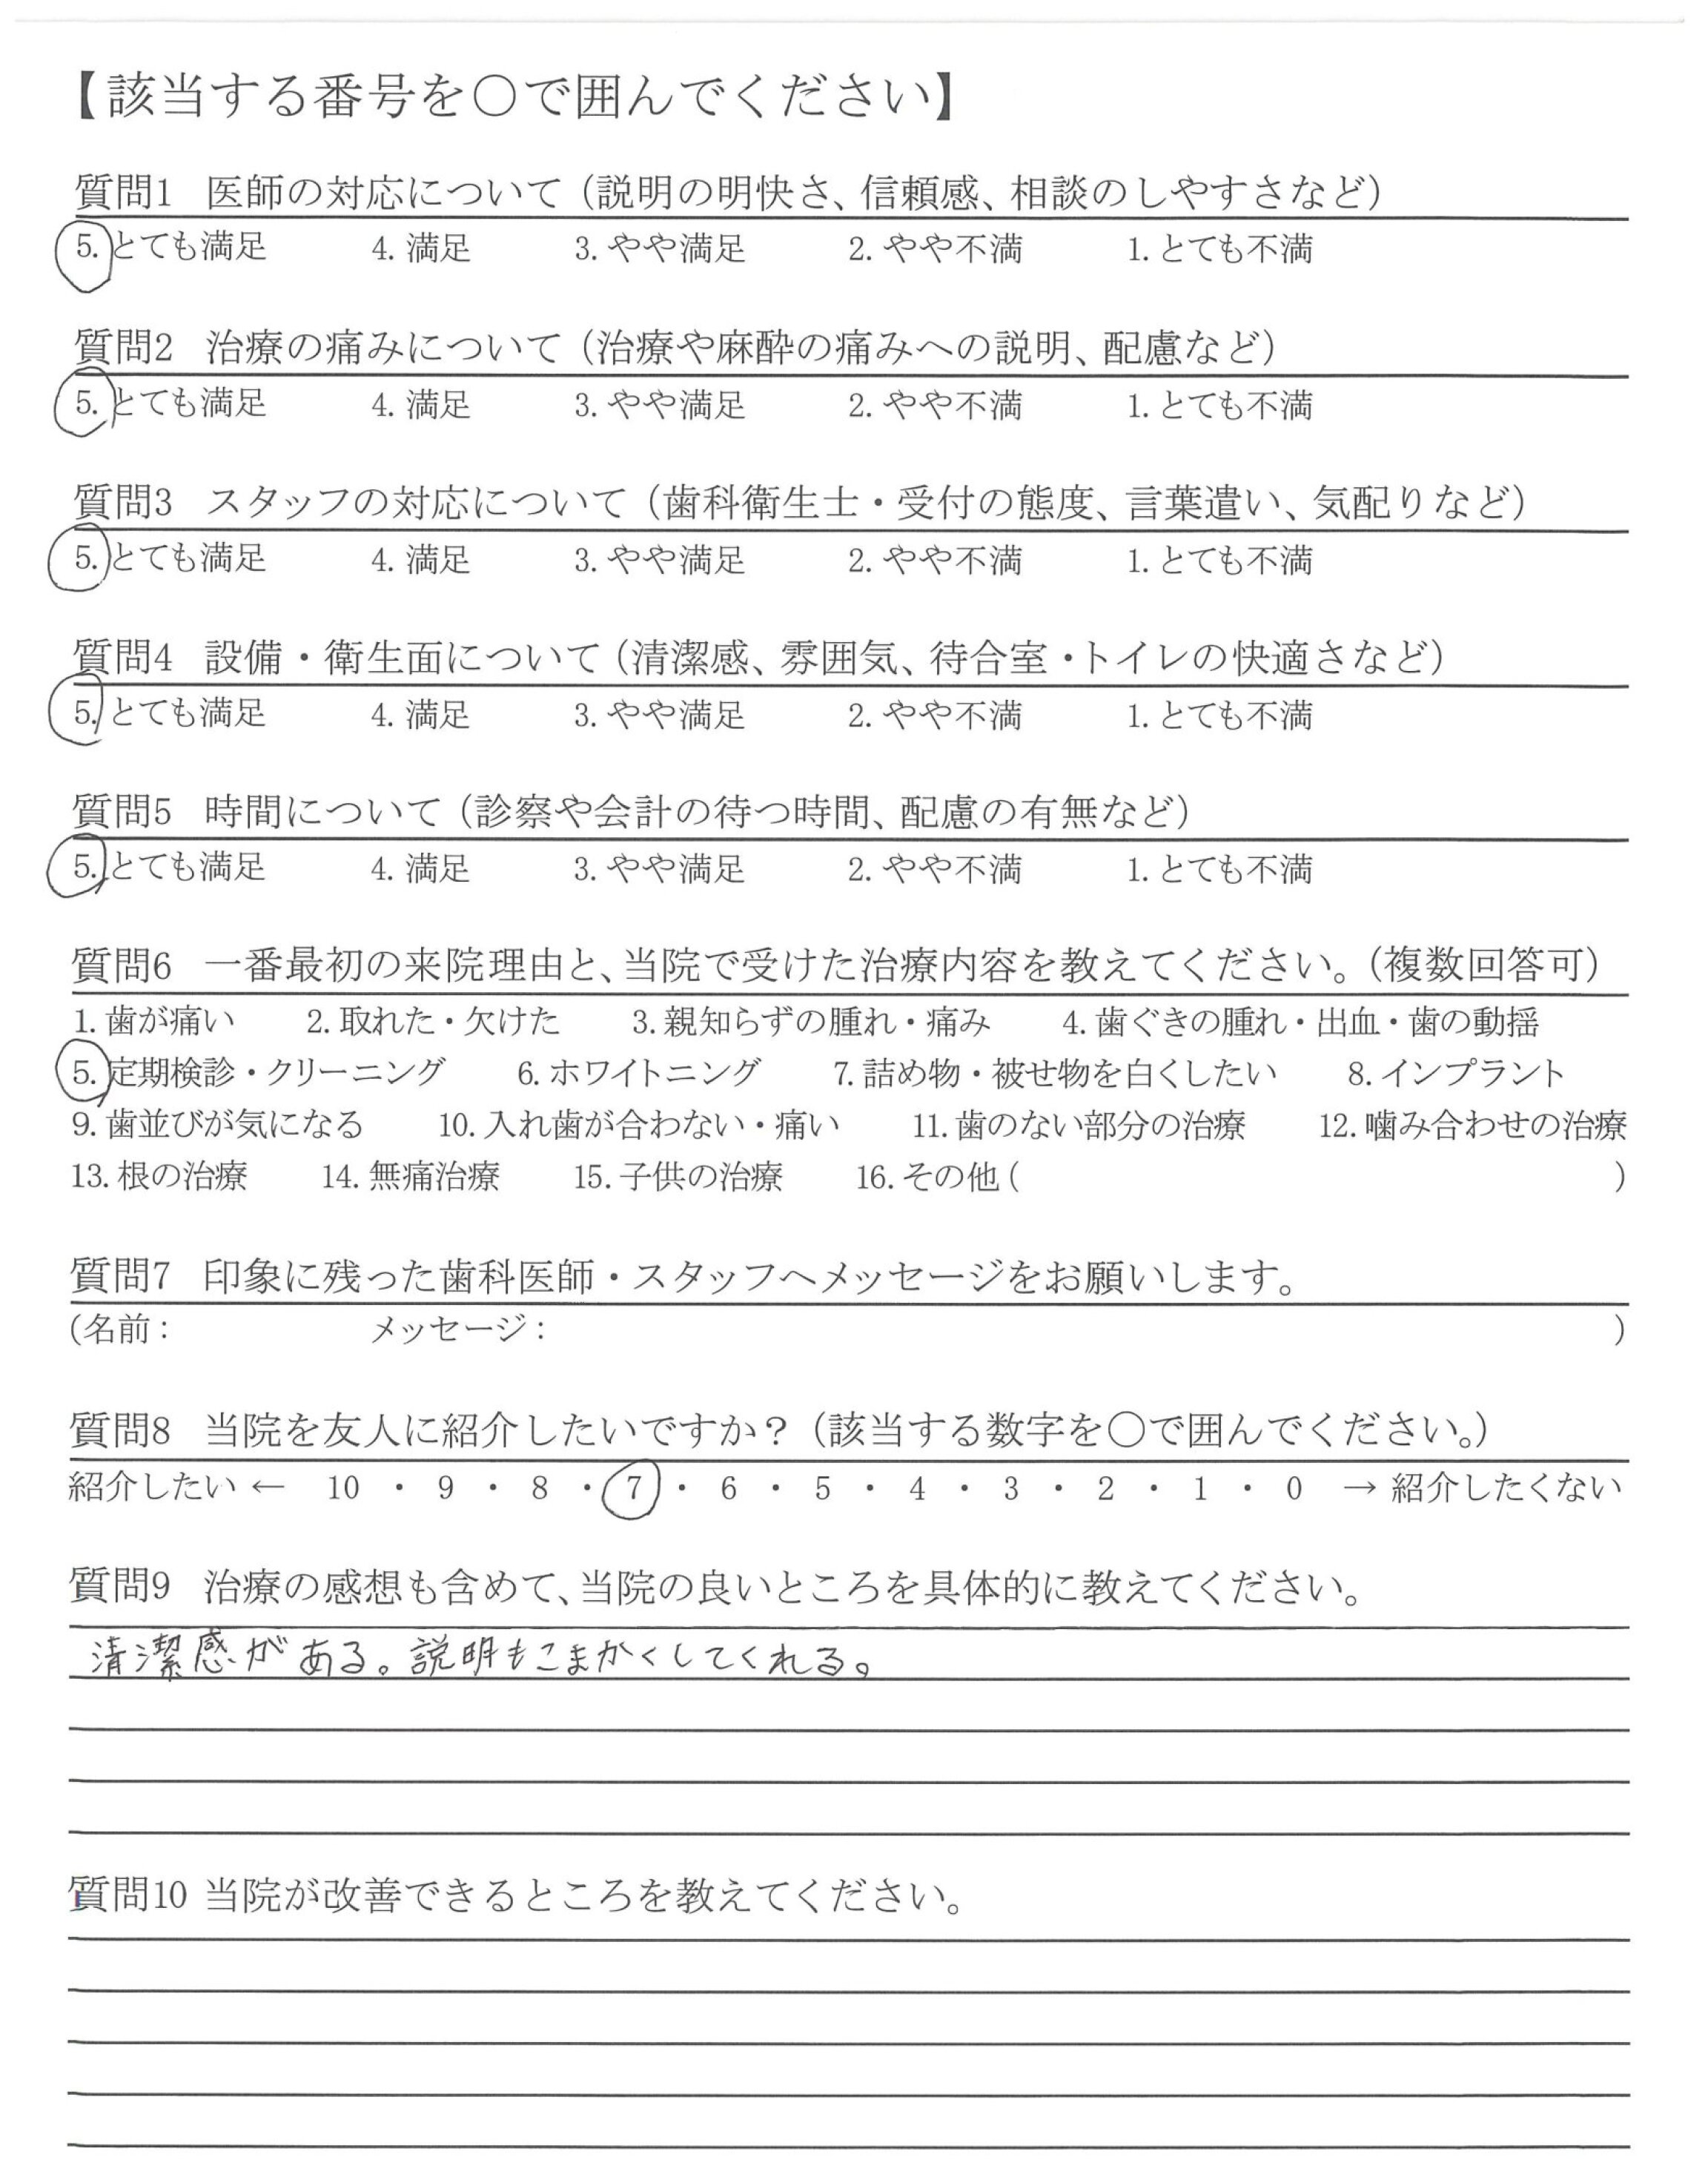 【該当する番号を○で囲んでください】
質問1 医師の対応について（説明の明快さ、信頼感、相談のしやすさなど）
5. とても満足 4. 満足 3. やや満足 2. やや不満 1. とても不満
質問2 治療の痛みについて（治療や麻酔の痛みへの説明、配慮など）
5. とても満足 4. 満足 3. やや満足 2. やや不満 1. とても不満
質問3 スタッフの対応について（歯科衛生士・受付の態度、言葉遣い、気配りなど）
5. とても満足 4. 満足 3. やや満足 2. やや不満 1. とても不満
質問4 設備・衛生面について（清潔感、雰囲気、待合室・トイレの快適さなど）
5. とても満足 4. 満足 3. やや満足 2. やや不満 1. とても不満
質問5 時間について（診察や会計の待つ時間、配慮の有無など）
5. とても満足 4. 満足 3. やや満足 2. やや不満 1. とても不満
質問6 一番最初の来院理由と、当院で受けた治療内容を教えてください。（複数回答可）
1. 歯が痛い 2. 取れた・欠けた 3. 親知らずの腫れ・痛み 4. 歯ぐきの腫れ・出血・歯の動揺
5. 定期検診・クリーニング 6. ホワイトニング 7. 詰め物・被せ物を白くしたい 8. インプラント
9. 歯並びが気になる 10. 入れ歯が合わない・痛い 11. 歯のない部分の治療 12. 噛み合わせの治療
13. 根の治療 14. 無痛治療 15. 子供の治療 16. その他（ ）
質問7 印象に残った歯科医師・スタッフへメッセージをお願いします。
（名前： メッセージ： ）
質問8 当院を友人に紹介したいですか？（該当する数字を○で囲んでください。）
紹介したい ← 10 ・ 9 ・ 8 ・ 7 ・ 6 ・ 5 ・ 4 ・ 3 ・ 2 ・ 1 ・ 0 → 紹介したくない
質問9 治療の感想も含めて、当院の良いところを具体的に教えてください。
清潔感がある。説明もこまかくしてくれる。
質問10 当院が改善できるところを教えてください。